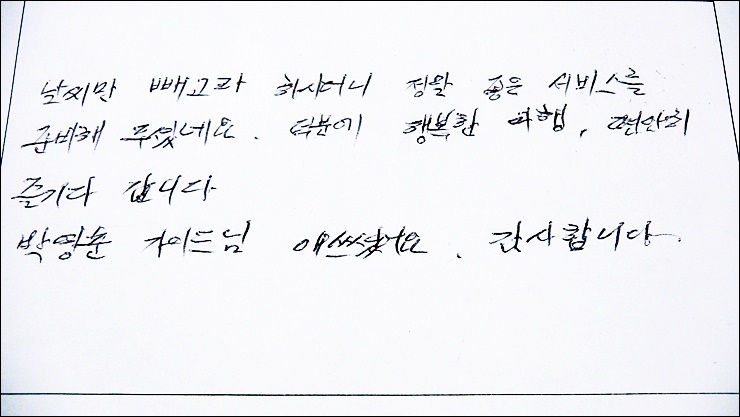 날씨만 빼고라 하시더니 정말 좋은 서비스를
준비해 주셨네요. 덕분에 행복한 여행, 편안히
즐기다 갑니다
박영춘 가이드님 애쓰셨어요. 감사합니다.